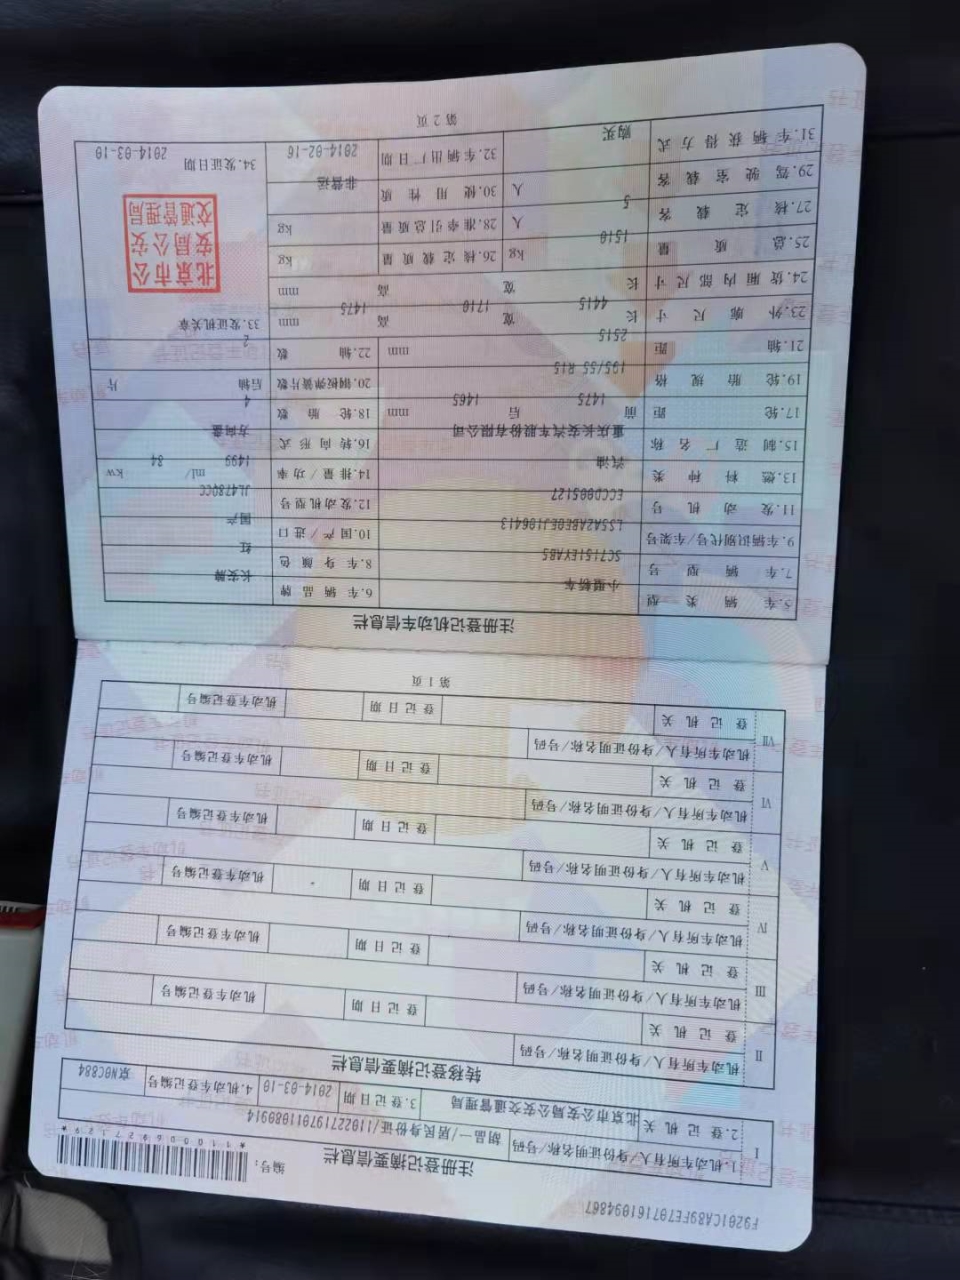 F9201CA89FE707161094867
注册登记摘要信息栏 编号:
I 1.机动车所有人/身份证明名称/号码 胡品一/居民身份证/110227197011080914
2.登记机关 北京市公安局公安交通管理局 3.登记日期 2014-03-10 4.机动车登记编号 京N0C884
转移登记摘要信息栏
II 机动车所有人/身份证明名称/号码
登记机关 登记日期 机动车登记编号
III 机动车所有人/身份证明名称/号码
登记机关 登记日期 机动车登记编号
IV 机动车所有人/身份证明名称/号码
登记机关 登记日期 机动车登记编号
V 机动车所有人/身份证明名称/号码
登记机关 登记日期 机动车登记编号
VI 机动车所有人/身份证明名称/号码
登记机关 登记日期 机动车登记编号
VII 机动车所有人/身份证明名称/号码
登记机关 登记日期 机动车登记编号
第1页
注册登记机动车信息栏
5.车辆类型 小型轿车 6.车辆品牌 长安牌
7.车辆型号 SC7151EYAB5 8.车身颜色 红
9.车辆识别代号/车架号 LS5A2ABE0EJ106413 10.国产/进口 国产
11.发动机号 ECCD005127 12.发动机型号 JL478QCC
13.燃料种类 汽油 14.排量/功率 1499 ml/ 84 kw
15.制造厂名称 重庆长安汽车股份有限公司 16.转向形式 方向盘
17.轮距 前 1475 后 1465 mm 18.轮胎数 4
19.轮胎规格 195/55 R15 20.钢板弹簧片数 后轴 片
21.轴距 2515 mm 22.轴数 2
23.外廓尺寸 长 4415 宽 1710 高 1475 mm 33.发证机关章
24.货厢内部尺寸 长 宽 高 mm
25.总质量 1510 kg 26.核定载质量 kg
27.核定载客 5 人 28.准牵引总质量 kg
29.驾驶室载客 人 30.使用性质 非营运
31.车辆获得方式 购买 32.车辆出厂日期 2014-02-16 34.发证日期 2014-03-10
北京市公
安局公安
交通管理局
第2页